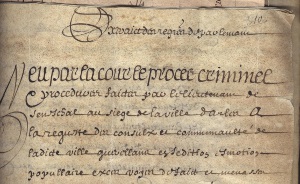 Extraict des registres de parlement
Veu par la cour le proces criminel
et procedures faictes par le lieutenant de
seneschal au siege de la ville d'arles A
la requeste des consulz et communaulté de
ladicte ville querellans esedition esmotion
populaire exces voyes de faict et